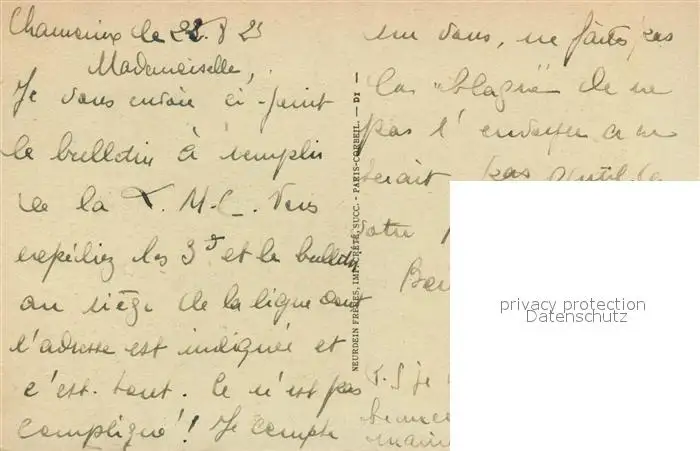 Chamonix le 22.8 25
Mademoiselle,
Je vous envoie ci-joint
le bulletin à remplir
de la L. M. C. Vous
expédiez les 3 F et le bulletin
au siège de la ligue dont
l'adresse est indiquée et
c'est tout. Ce n'est pas
compliqué! Je compte
NEURDEIN FRÈRES, IMP. CRÉTÉ, SUCC. - PARIS-CORBEIL. — DI —
sur vous, ne faites pas
la "blague" de ne
pas l'envoyer ce ne
serait pas gentil de
votre
P.S je
privacy protection
Datenschutz